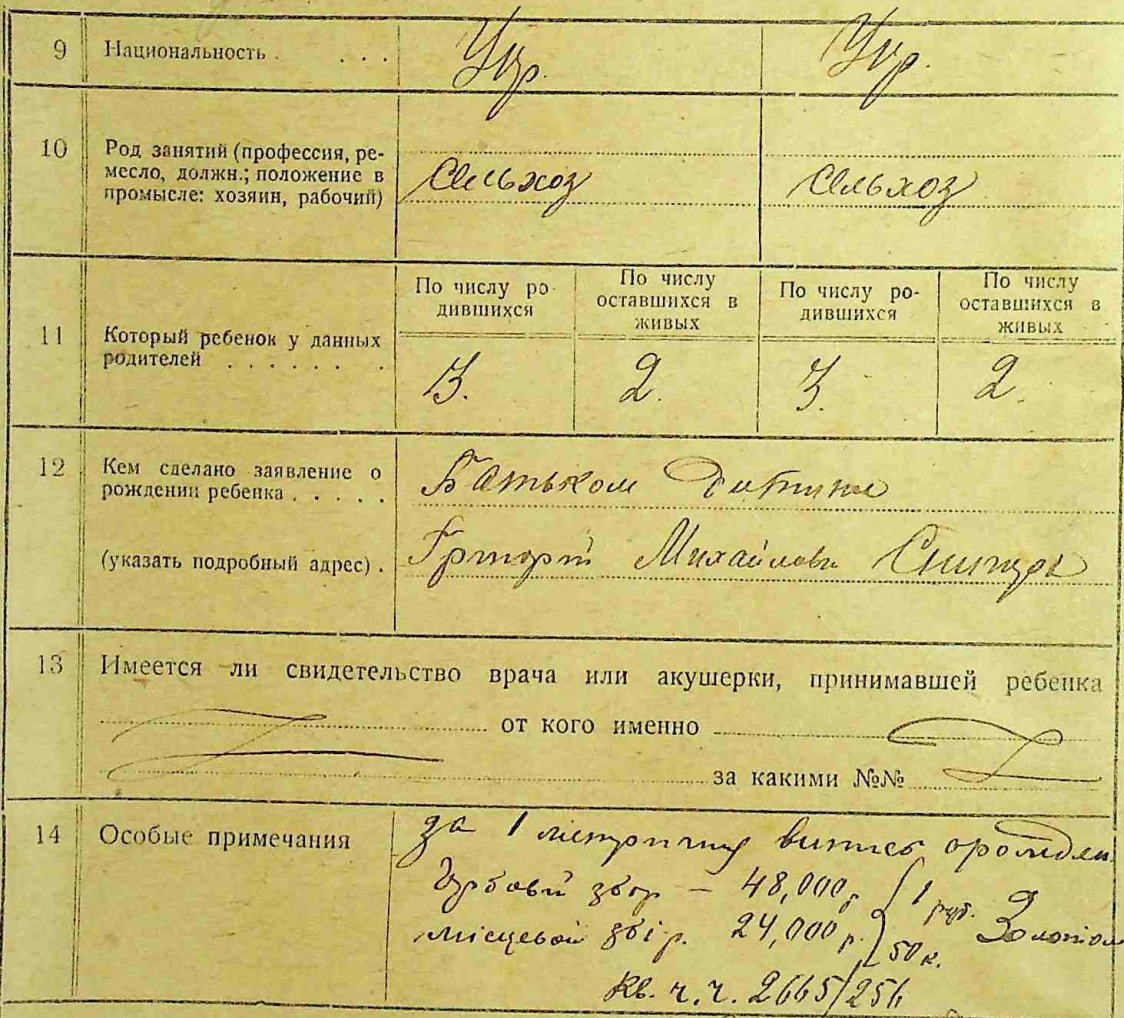 9 Национальность . . . . Укр. Укр.
10 Род занятий (профессия, ре-
месло, должн.; положение в
промысле: хозяин, рабочий)
Сельхоз Сельхоз
11 Который ребенок у данных
родителей . . . . . . .
По числу ро-
дившихся
По числу
оставшихся в
живых
По числу ро-
дившихся
По числу
оставшихся в
живых
3. 2. 3. 2.
12 Кем сделано заявление о
рождении ребенка . . . . .
Батьком
(указать подробный адрес) .
Григорій Михайлови
13 Имеется ли свидетельство врача или акушерки, принимавшей ребенка
от кого именно
за какими №№
14 Особые примечания
за 1
збор — 48,000 р 1 руб.
місцевой збір. 24,000 р. 50 к.
кв. ч. ч. 2665/256